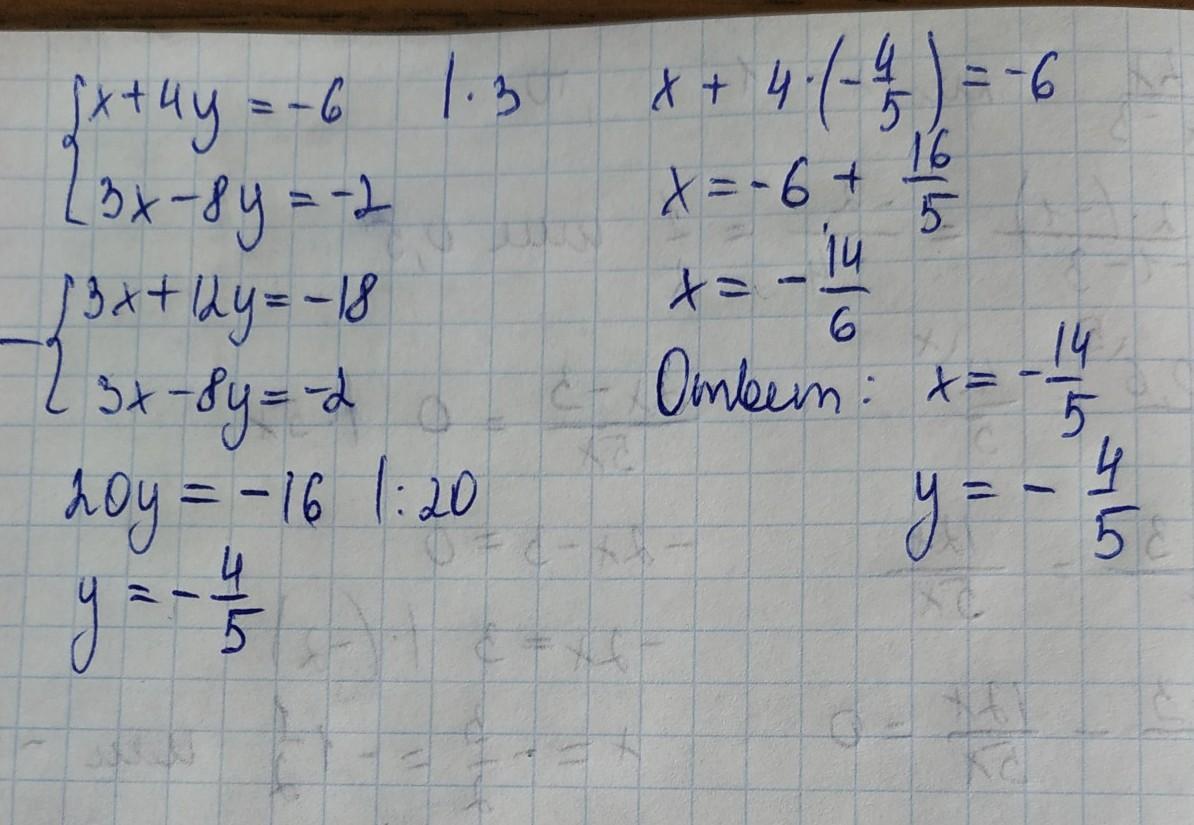 {x+4y=-6 |·3
3x-8y=-2
-{3x+12y=-18
3x-8y=-2
20y=-16 |:20
y=-4/5
x+4·(-4/5)=-6
x=-6+16/5
x=-14/6
Ответ: x=-14/5
y=-4/5